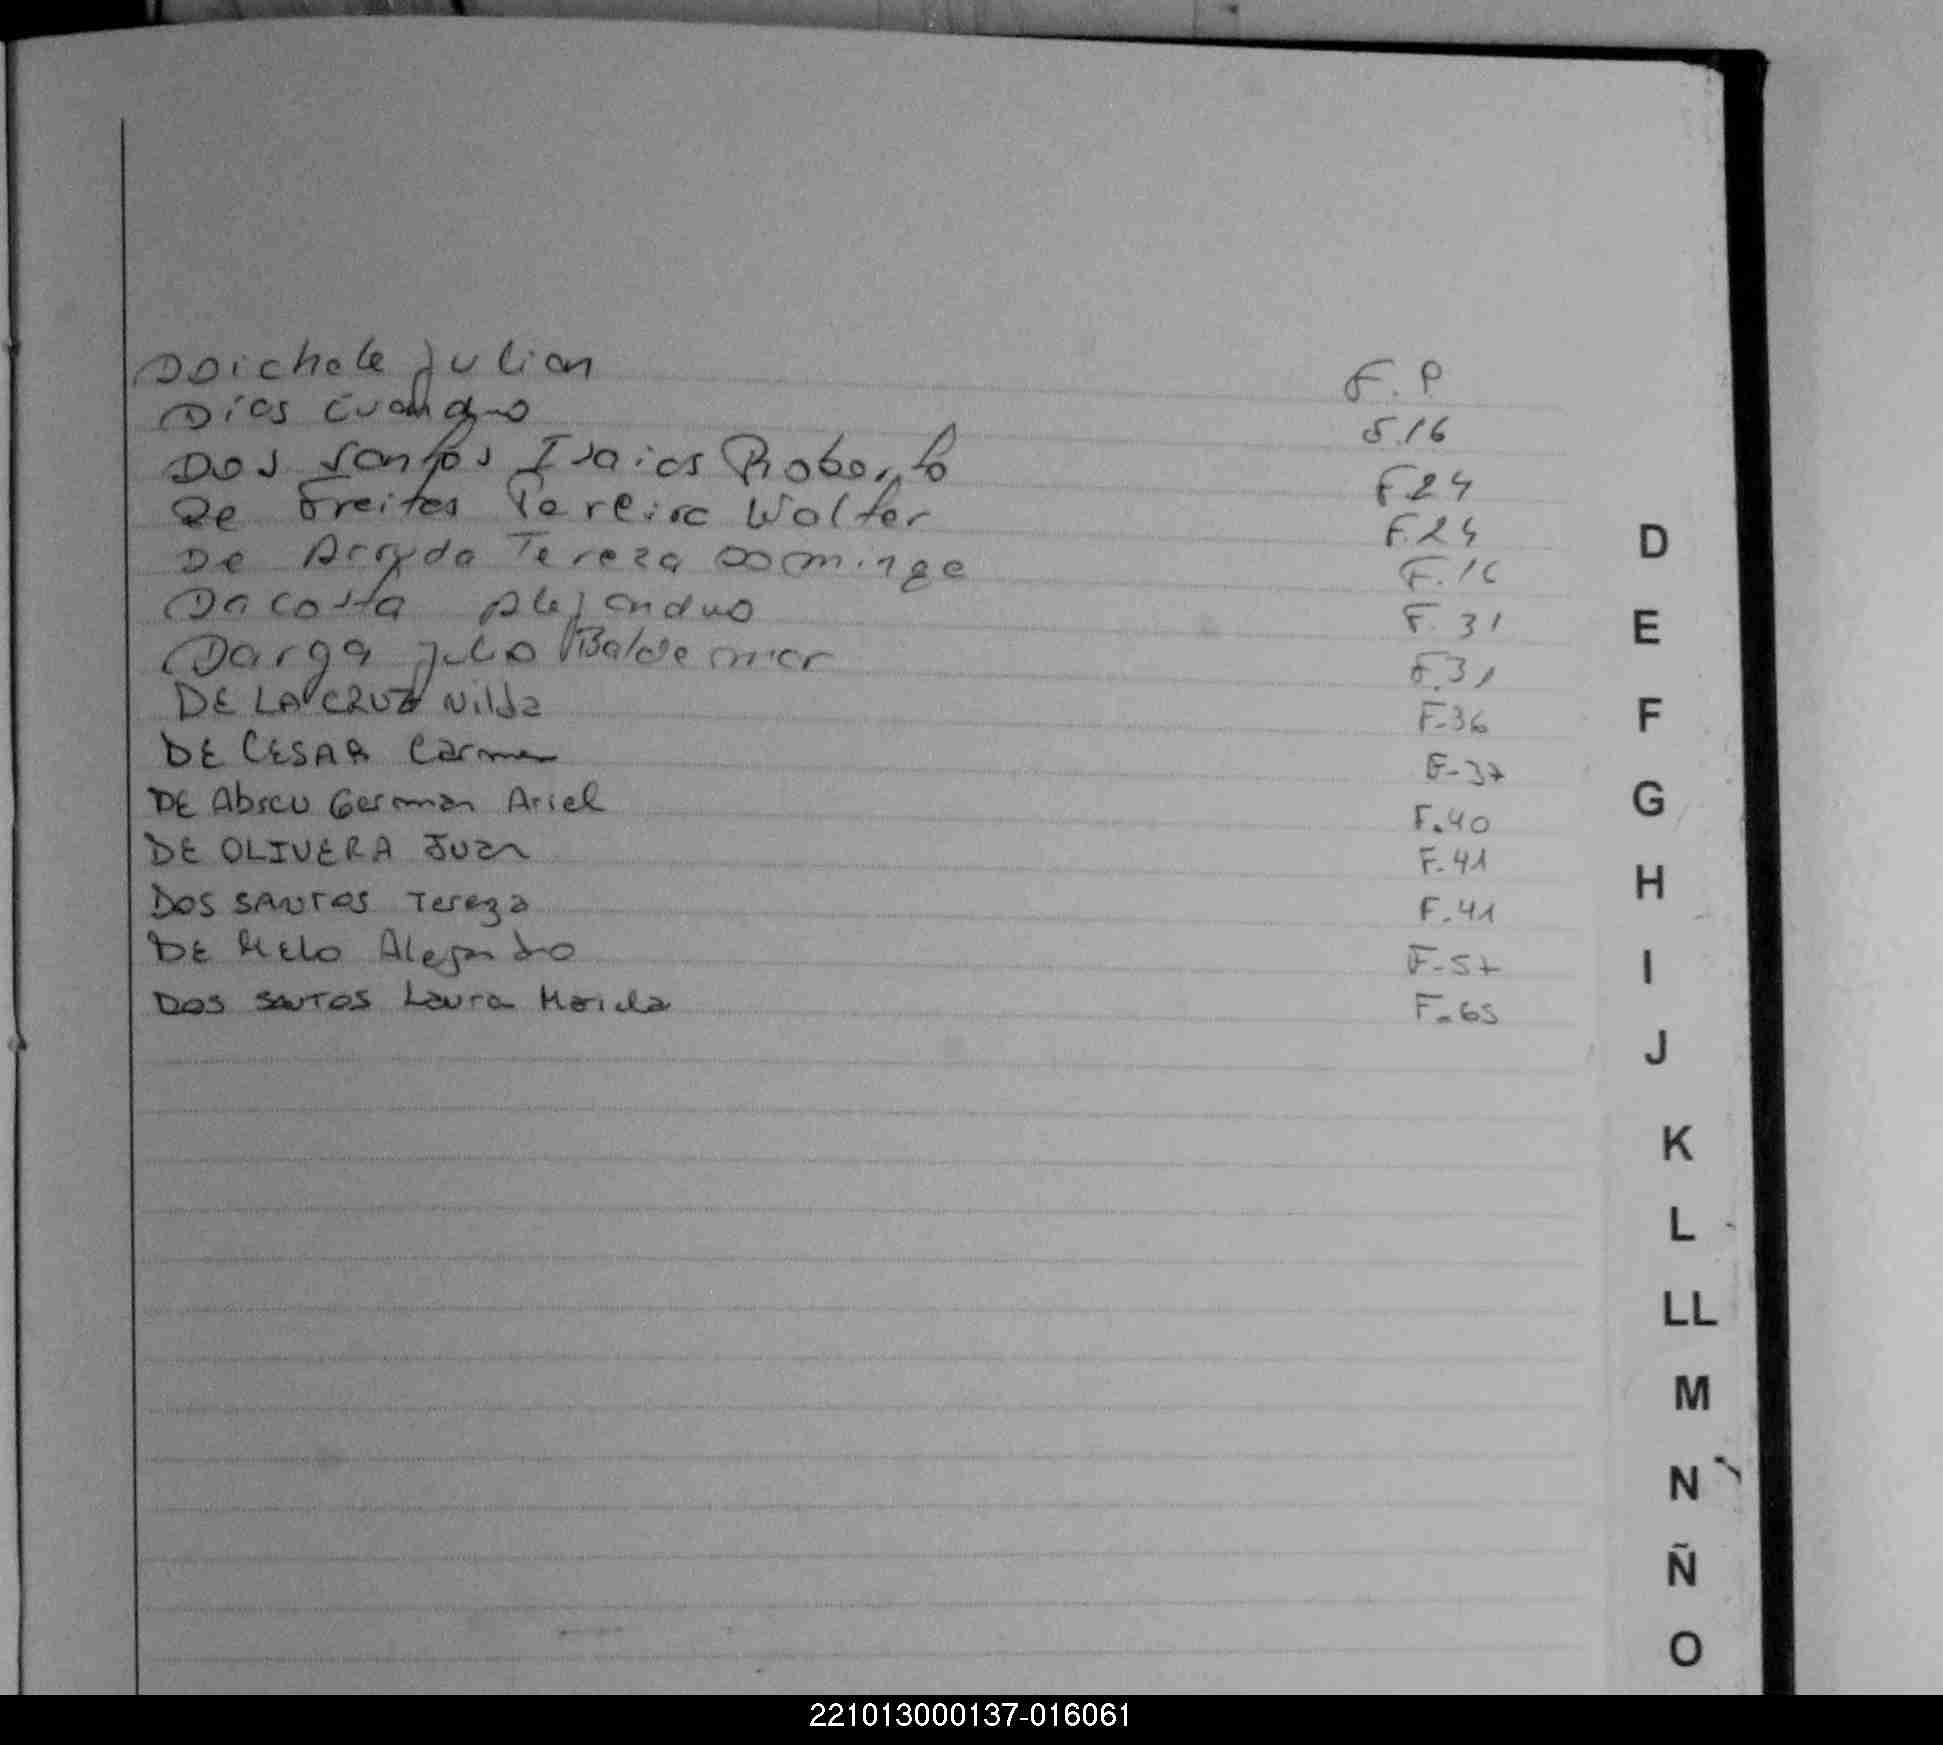 Doichele Julian F. P.
Dias Evandro 5.16
Dos Santos Isaias Roberto F.24
De Freites Pereira Walter F.24
De Arryda Tereza Dominga F.16
Da Costa Alejandro F. 31
Darga Julio Baldemar F.31
DE LA CRUZ Nilda F.36
DE CESAR Carmen F-37
DE Abreu German Ariel F.40
DE OLIVERA Juan F.41
DOS SANTOS Tereza F.41
DE Melo Alejandro F-57
DOS SANTOS Laura Mariela F.65
D
E
F
G
H
I
J
K
L
LL
M
N
Ñ
O
221013000137-016061